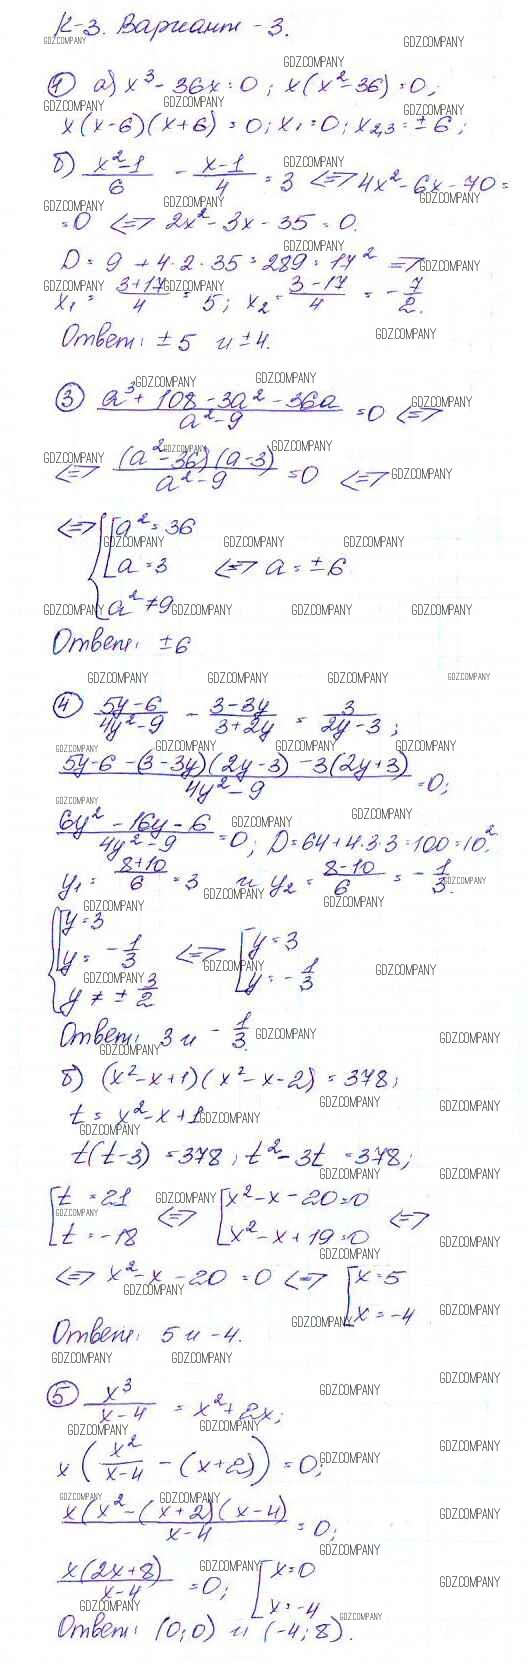 К-3. Вариант -3.
① а) x³ - 36x = 0; x(x² - 36) = 0;
x(x-6)(x+6) = 0; x₁ = 0; x₂,₃ = ±6;
б) (x²-1)/6 - (x-1)/4 = 3 <=> 4x² - 6x - 70 =
= 0 <=> 2x² - 3x - 35 = 0.
D = 9 + 4·2·35 = 289 = 17² =>
x₁ = (3+17)/4 = 5; x₂ = (3-17)/4 = -7/2.
Ответ: ±5 и ±4.
③ (a³ + 108 - 3a² - 36a)/(a² - 9) = 0 <=>
<=> (a² - 36)(a - 3)/(a² - 9) = 0 <=>
<=> { [ a² = 36
a = 3 <=> a = ±6
a² ≠ 9
Ответ: ±6
④ (5y-6)/(4y²-9) - (3-3y)/(3+2y) = 3/(2y-3);
(5y-6-(3-3y)(2y-3)-3(2y+3))/(4y²-9) = 0;
(6y² - 16y - 6)/(4y²-9) = 0; D = 64 + 4·3·3 = 100 = 10².
y₁ = (8+10)/6 = 3 и y₂ = (8-10)/6 = -1/3.
{ [ y = 3
y = -1/3 <=> [ y = 3
y = -1/3
y ≠ ± 3/2
Ответ: 3 и -1/3.
б) (x²-x+1)(x²-x-2) = 378;
t = x² - x + 1
t(t-3) = 378; t² - 3t = 378;
[ t = 21
t = -18 <=> [ x² - x - 20 = 0
x² - x + 19 = 0 <=>
<=> x² - x - 20 = 0 <=> [ x = 5
x = -4
Ответ: 5 и -4.
⑤ x³/(x-4) = x² + 2x;
x(x²/(x-4) - (x+2)) = 0;
x(x² - (x+2)(x-4)/(x-4) = 0;
x(2x+8)/(x-4) = 0; [ x = 0
x = -4
Ответ: (0;0) и (-4;8).
GDZ.COMPANY